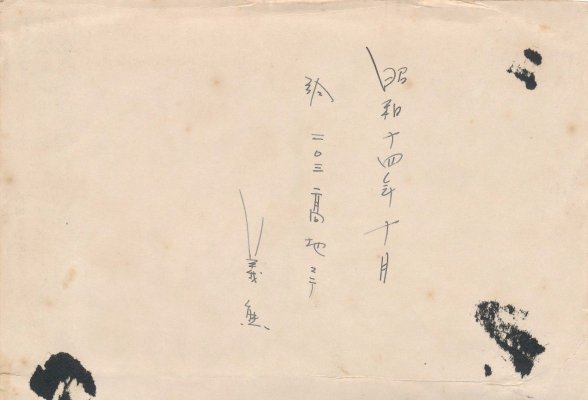 昭和十四年十月
於 二〇三高地ニテ
義熊